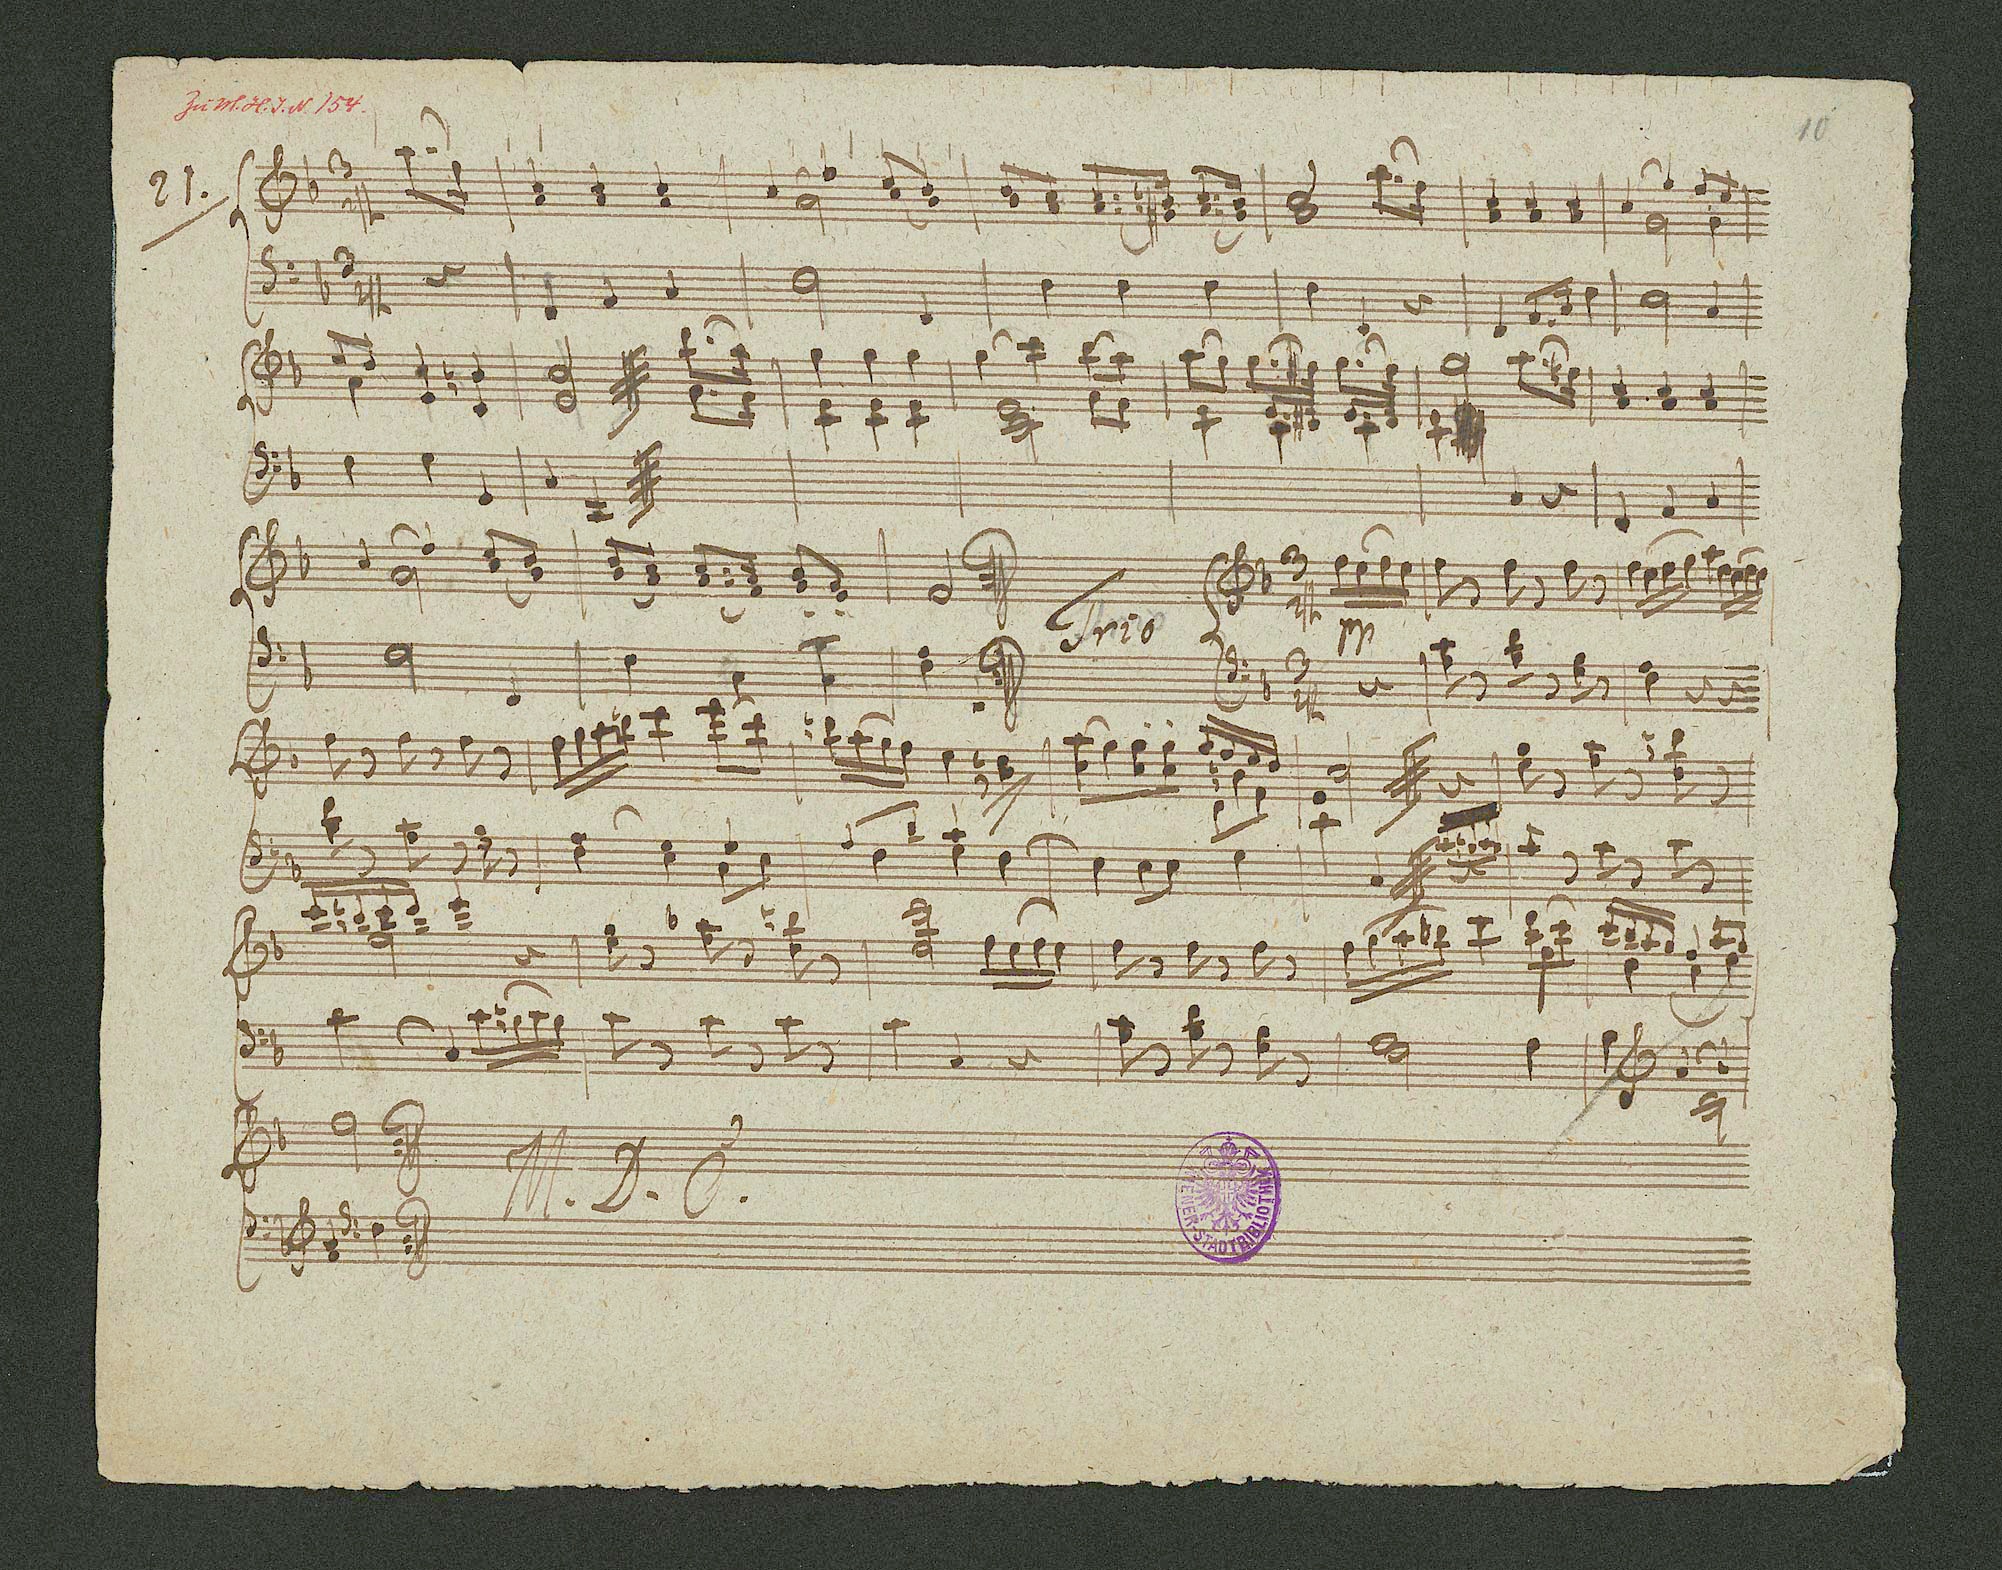 Zu M.H.I.N. 154.
10
21.
3/4
3/4
Trio
3/4
pp
3/4
M. D. C.
WIENER-STADTBIBLIOTHEK